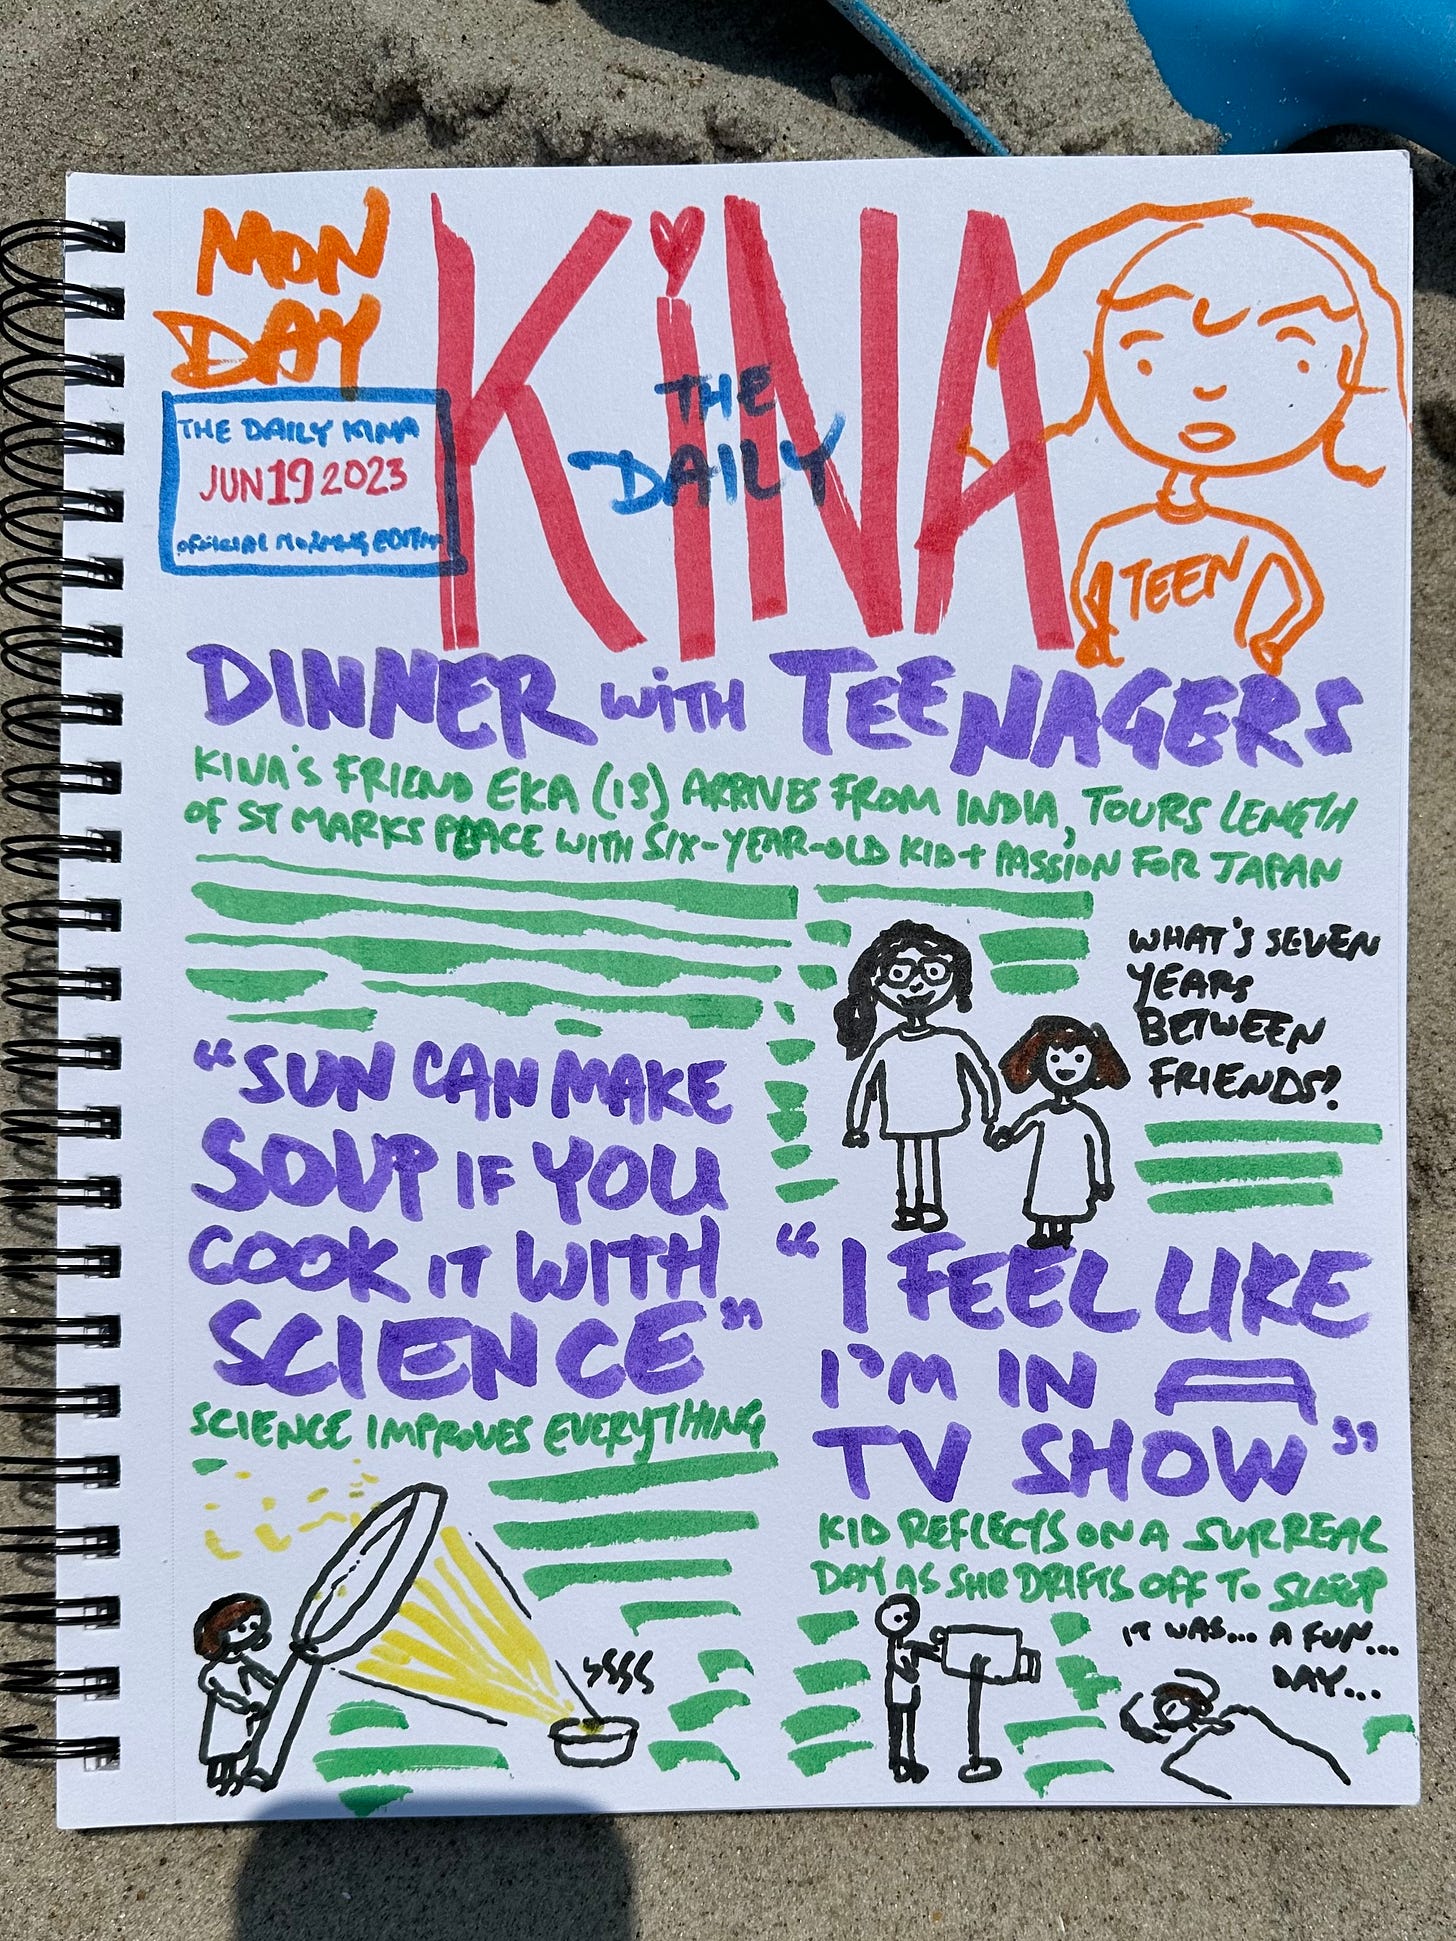 MON
DAY
THE DAILY KINA
JUN 19 2023
OFFICIAL MORNING EDITION
KiNA
THE
DAILY
TEEN
DINNER WITH TEENAGERS
KINA'S FRIEND EKA (13) ARRIVES FROM INDIA, TOURS LENGTH
OF ST MARKS PLACE WITH SIX-YEAR-OLD KID + PASSION FOR JAPAN
WHAT'S SEVEN
YEARS
BETWEEN
FRIENDS?
"SUN CAN MAKE
SOUP IF YOU
COOK IT WITH
SCIENCE"
SCIENCE IMPROVES EVERYTHING
SSSS
"I FEEL LIKE
I'M IN
TV SHOW"
KID REFLECTS ON A SURREAL
DAY AS SHE DRIFTS OFF TO SLEEP
IT WAS... A FUN...
DAY...